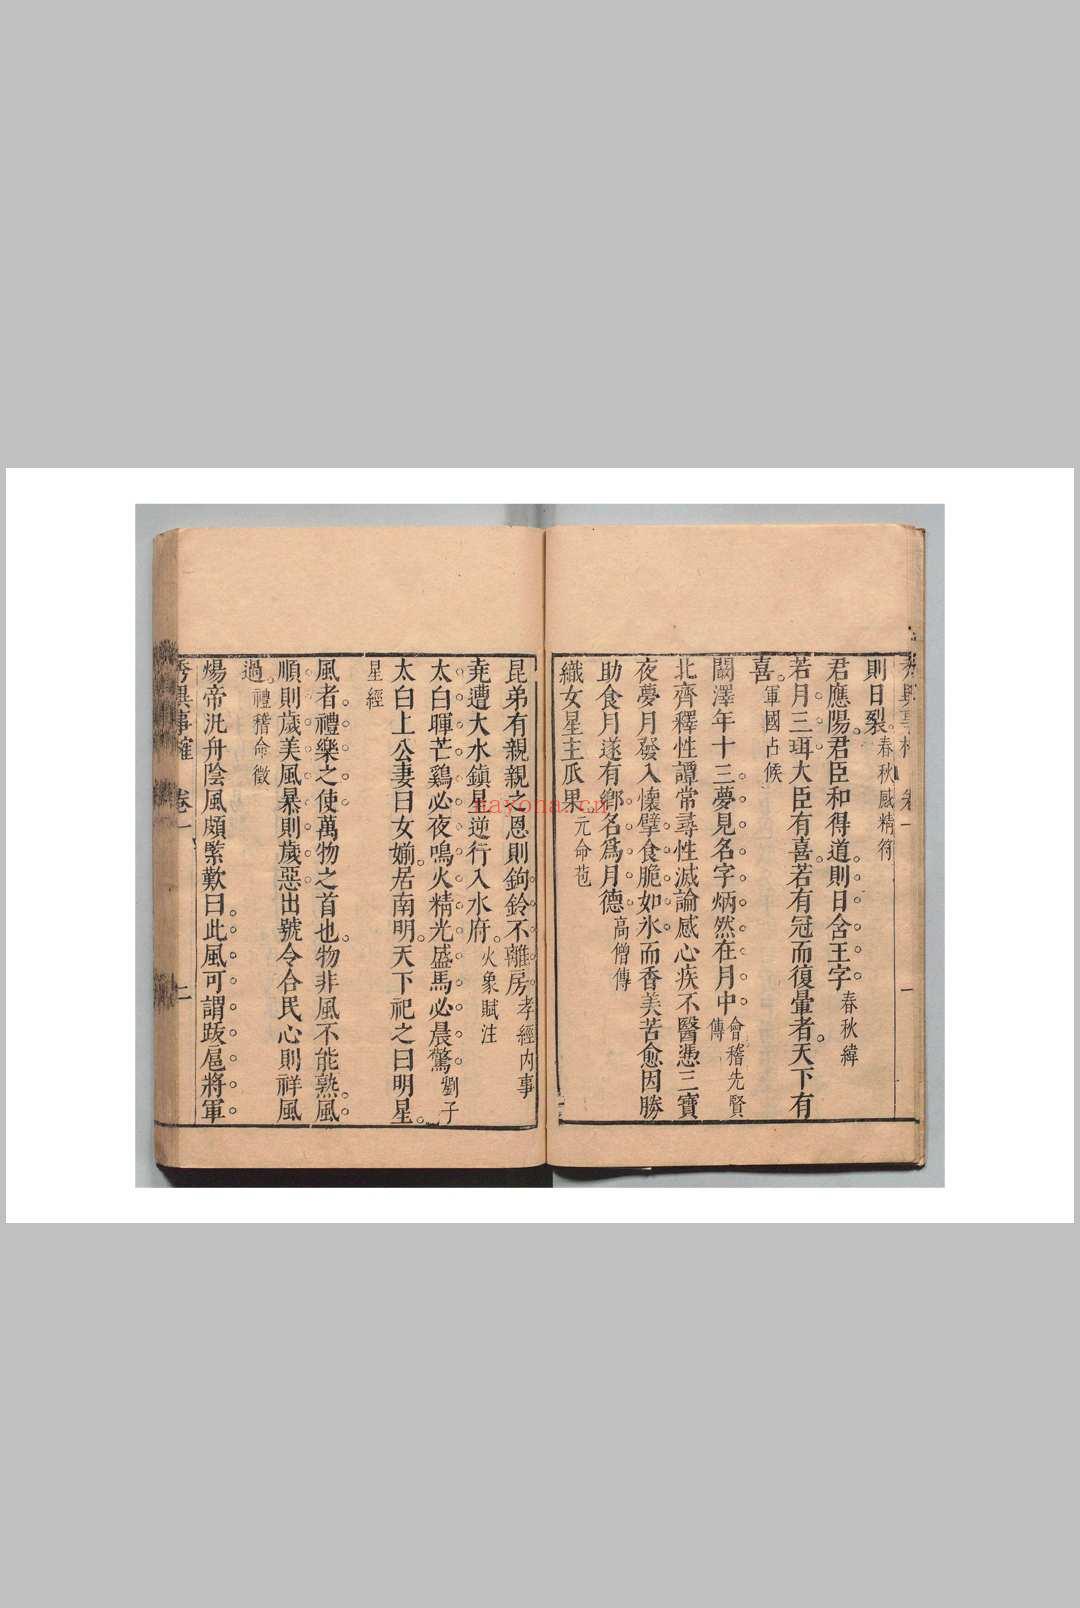 則日裂。春秋感精符
君應陽君臣和得道則日含王字春秋緯
若月三珥大臣有喜若有冠而復暈者天下有
喜。軍國占候
闞澤年十三夢見名字炳然在月中會稽先賢傳
北齊釋性譚常尋性滅論感心疾不醫憑三寶
夜夢月發入懷擘食脆如氷而香美苦愈因勝
助食月遂有鄉名爲月德高僧傳
織女星主瓜果元命苞
昆弟有親親之恩則鉤鈴不離房孝經內事
堯遭大水鎮星逆行入水府。火象賦注
太白暉芒鷄必夜鳴火精光盛馬必晨驚劉子
太白上公妻曰女媊居南明天下祀之曰明星。
星經
風者禮樂之使萬物之首也物非風不能熟風
順則歲美風暴則歲惡出號令合民心則祥風
過。禮稽命徵
煬帝汎舟陰風頗緊歎曰此風可謂跋扈將軍
秀異事確 卷一 二
nayona.cn